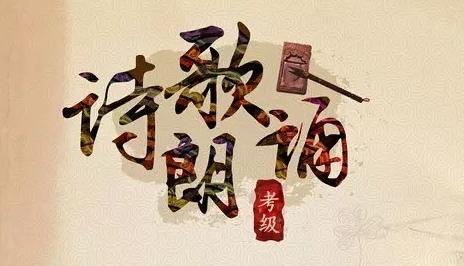 诗歌朗诵
考级